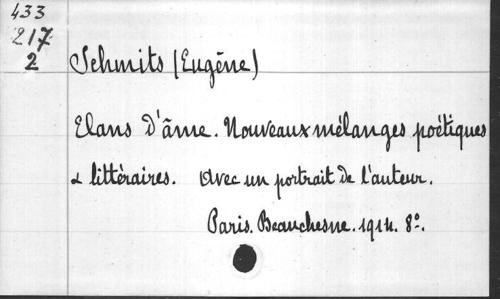 433
217
2
Schmits (Eugène)
Elans d'âme. Nouveaux mélanges poétiques
& littéraires. Avec un portrait de l'auteur.
Paris. Beauchesne. 1914. 8º.